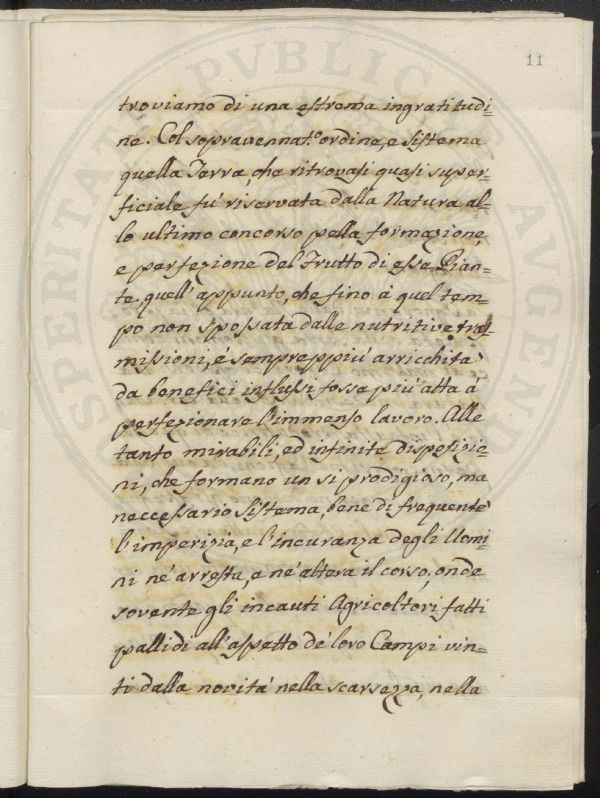 11
troviamo di una estrema ingratitudi=
ne. Col sopravennat.o ordine, e sistema
quella Terra, che ritrovasi quasi super=
ficiale fú riservata dalla Natura al=
lo ultimo concorso pella formazione,
e perfezione del Frutto di esse Pian=
te, quell'appunto, che fino á quel tem=
po non spossata dalle nutritive tras=
missioni, e sempreppiú arricchita
da benefici influssi fosse piú atta á
perfezionare l'immenso lavoro. Alle
tanto mirabili, ed infinite disposizio=
ni, che formano un si prodigioso, ma
neccessario sistema, bene di frequente
l'imperizia, e l'incuranza degli Uomi=
ni né arresta, e né altera il corso; onde
sovente gli incauti Agricoltori fatti
pallidi all'aspetto dé loro Campi vin=
ti dalla novitá nella scarsezza, nella